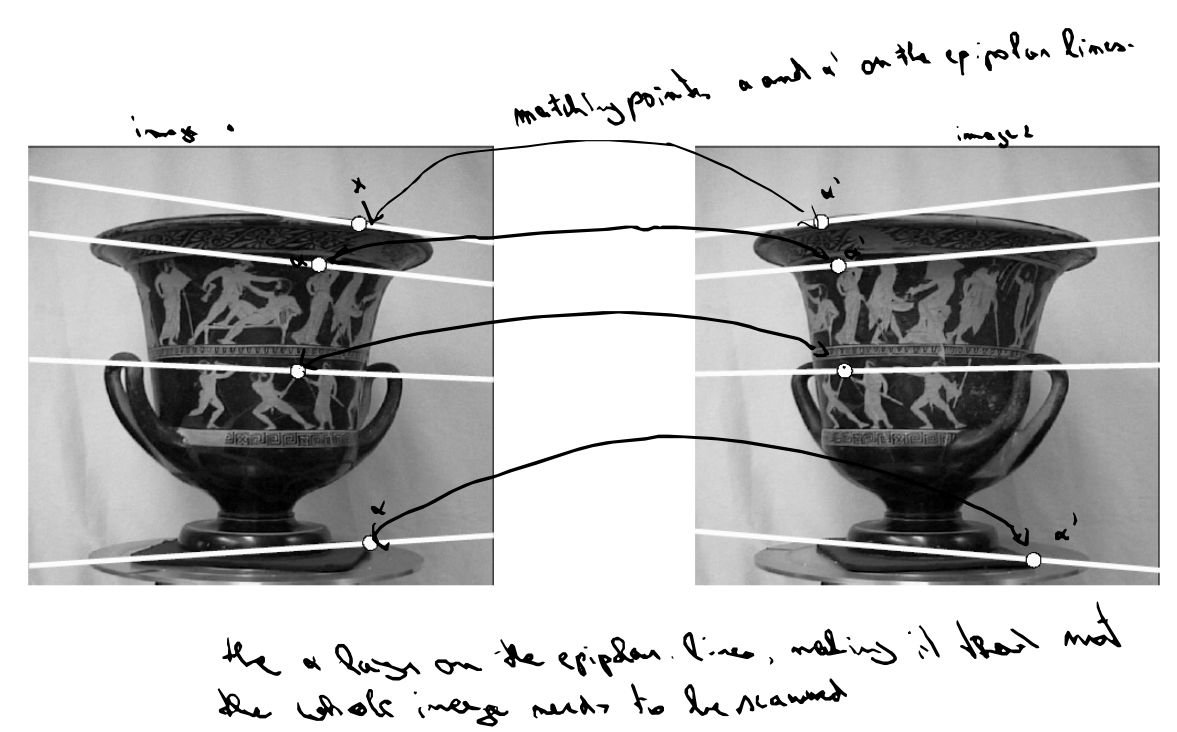 matching points x and x' on the epipolar lines.
image
image 2
x
x'
x'
x
x'
the x lays on the epipolar lines, making it that not
the whole image needs to be scanned